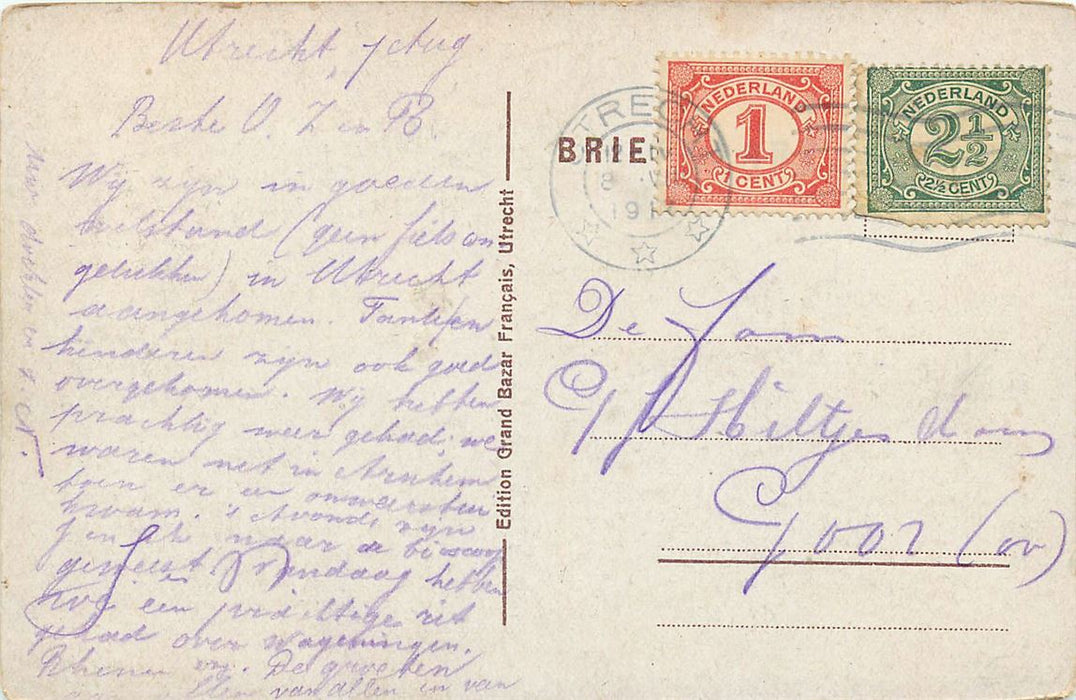 Utrecht, 7 Aug.
Beste O. Z en B.
Wij zijn in goeden
welstand (geen fiets on
gelukken) in Utrecht
aangekomen. Tante en
kinderen zijn ook goed
overgekomen. Wij hebben
prachtig weer gehad; we
waren net in Arnhem
toen er een onweersbui
kwam. 's Avonds zijn
J en ik naar de bioscoop
geweest Vandaag hebben
we een prachtige rit
gehad over Wageningen,
Rhenen enz. De groeten
van allen en van
Edition Grand Bazar Français, Utrecht
BRIE
UTRECH
8
191
NEDERLAND
1
1 CENT
NEDERLAND
2½
2½ CENT
De Fam
G. Hiltjesdam
Goor (ov)